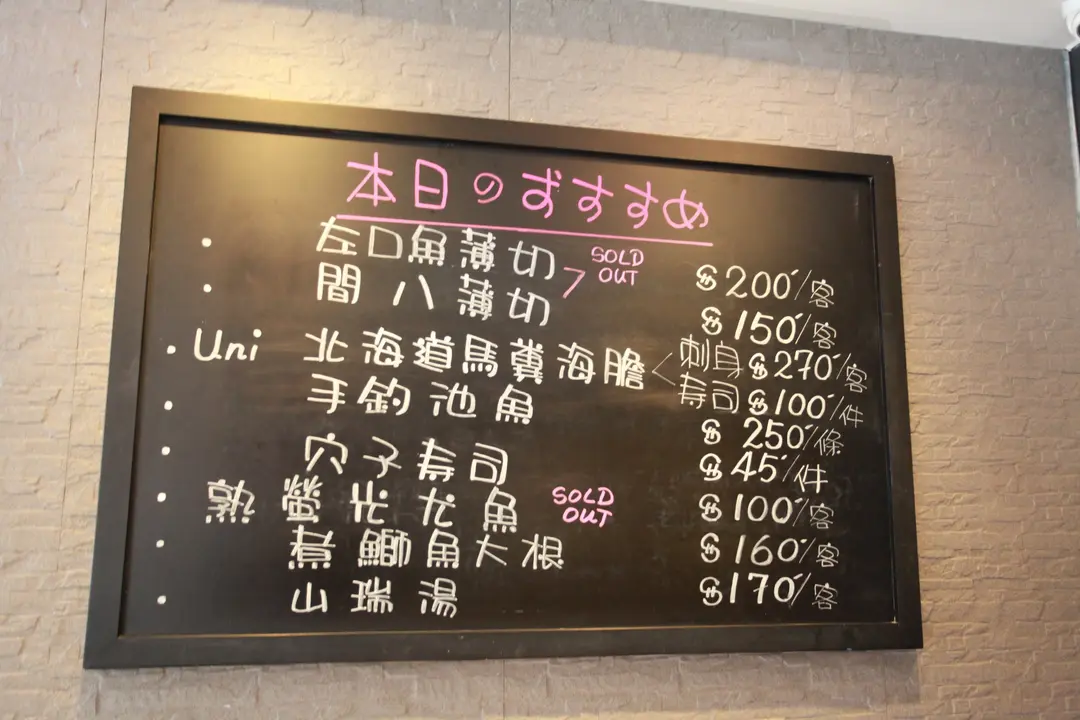 本日のおすすめ
左口魚薄切 SOLD OUT $200/客
間八薄切 $150/客
Uni 北海道馬糞海膽 刺身 $270/客
寿司 $100/件
手釣池魚 $250/條
穴子寿司 $45/件
熟螢光尤魚 SOLD OUT $100/客
煮鰤魚大根 $160/客
山瑞湯 $170/客